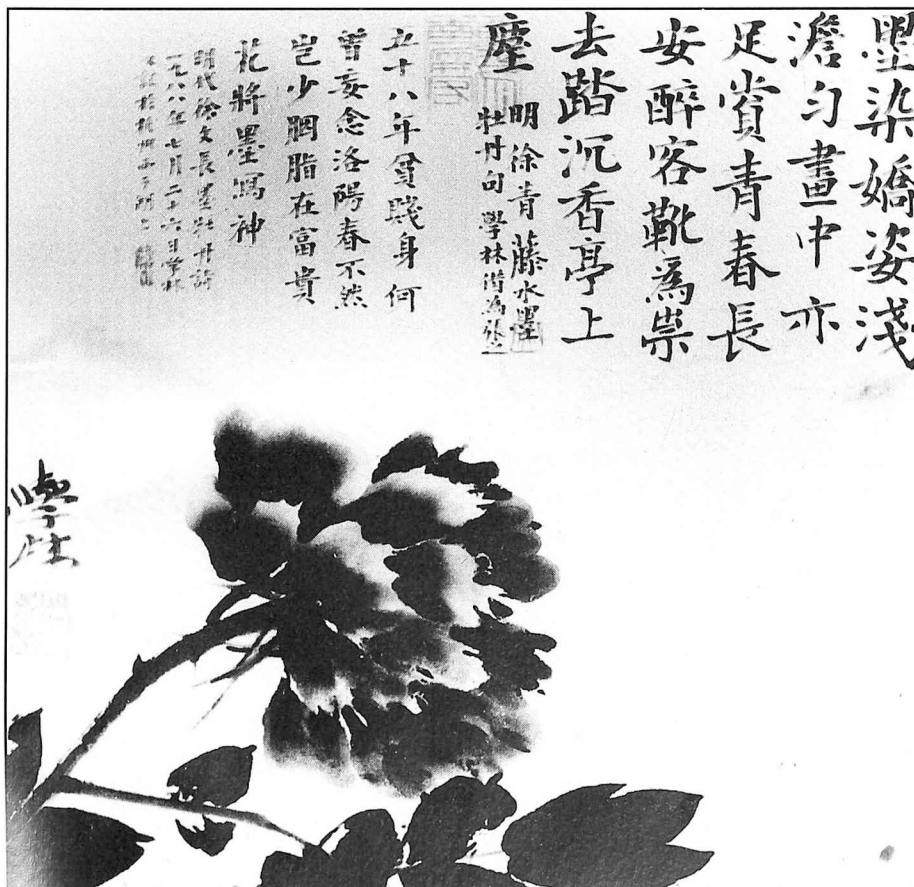 墨染嬌姿淺
澹勻畫中亦
足賞青春長
安醉客靴為祟
去踏沉香亭上
塵
明徐青藤水墨
牡丹句學林
五十八年貧賤身何
曾妄念洛陽春不然
豈少胭脂在富貴
花將墨寫神
明代徐文長墨牡丹詩
一九八八年七月二十六日學林